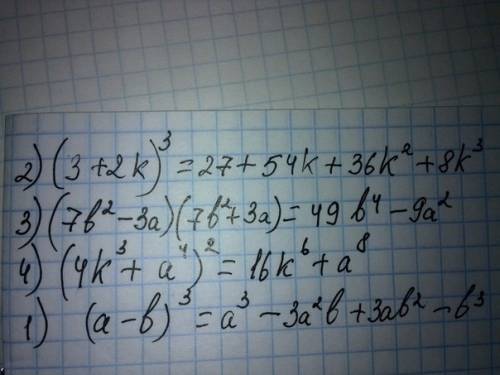 2) (3+2k)³ = 27 + 54k + 36k² + 8k³
3) (7b² – 3a)(7b² + 3a) = 49b⁴ – 9a²
4) (4k³ + a⁴)² = 16k⁶ + a⁸
1) (a – b)³ = a³ – 3a²b + 3ab² – b³